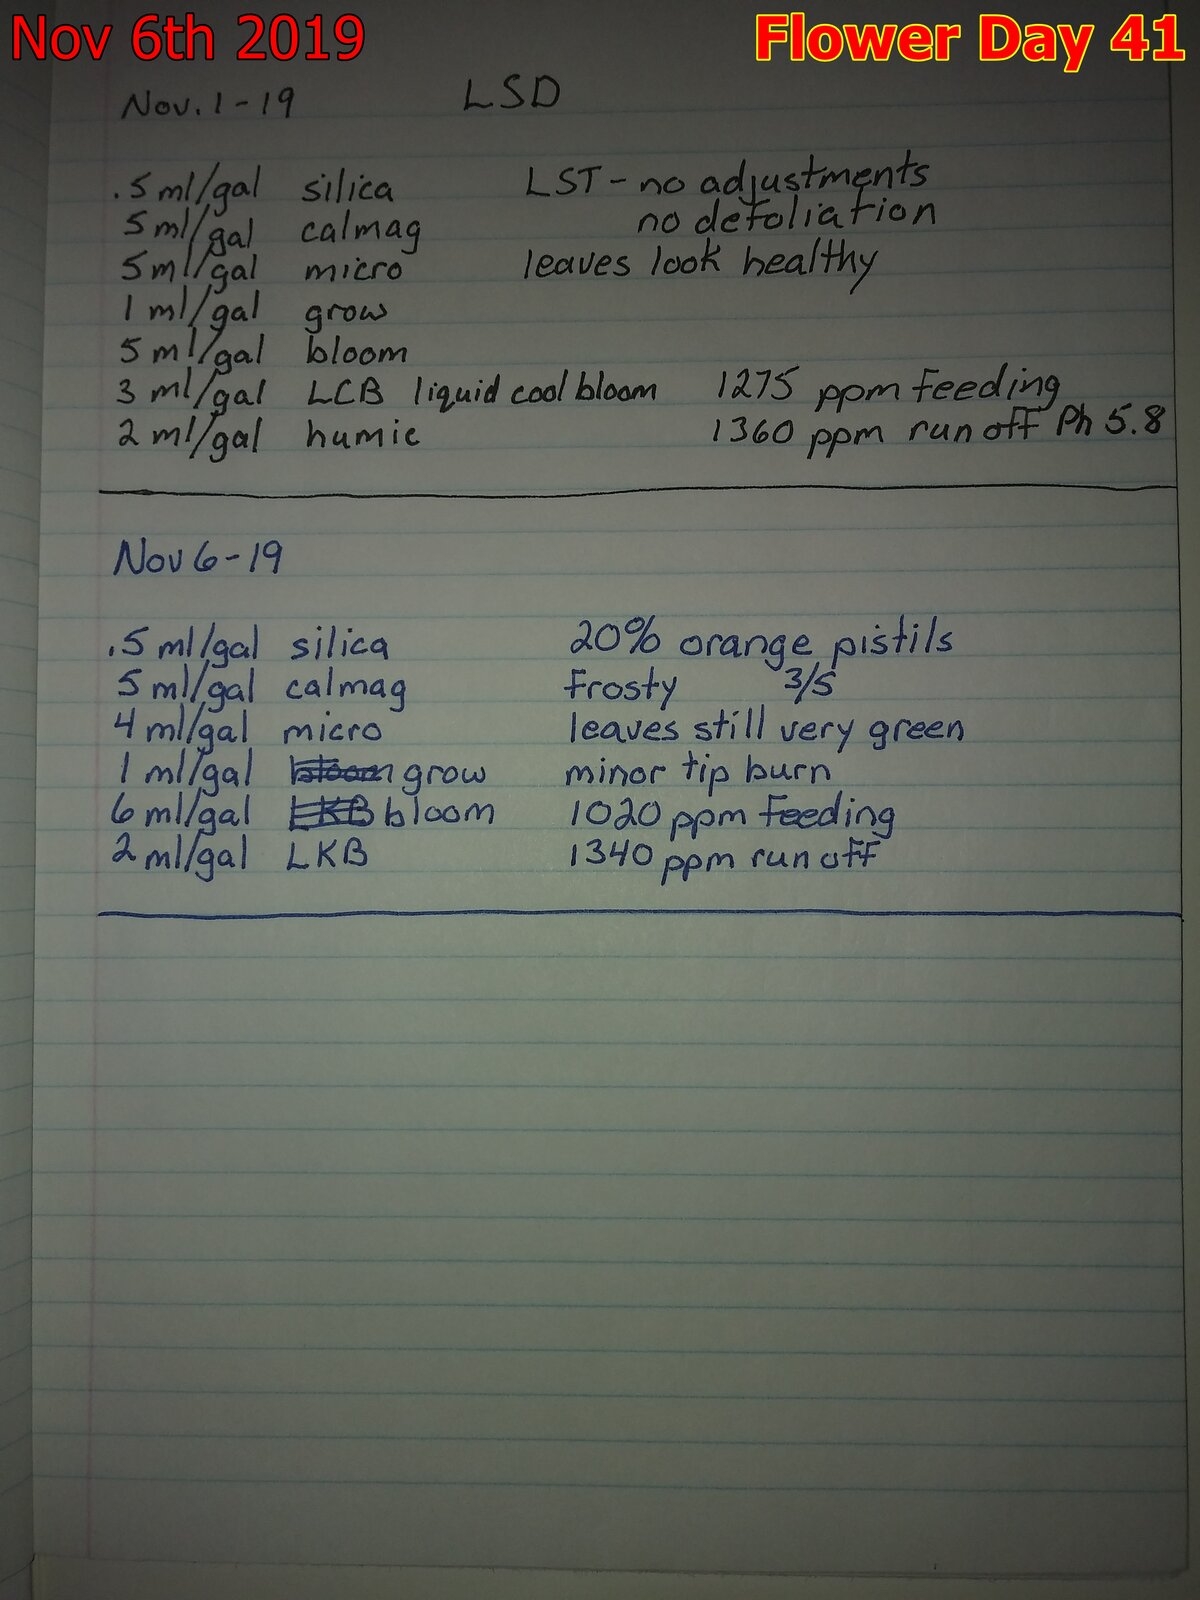 Nov 6th 2019 Flower Day 41
Nov. 1-19 LSD
.5 ml/gal silica LST - no adjustments
5 ml/gal calmag no defoliation
5 ml/gal micro leaves look healthy
1 ml/gal grow
5 ml/gal bloom
3 ml/gal LCB liquid cool bloom 1275 ppm feeding
2 ml/gal humic 1360 ppm run off Ph 5.8
Nov 6-19
.5 ml/gal silica 20% orange pistils
5 ml/gal calmag frosty 3/5
4 ml/gal micro leaves still very green
1 ml/gal bloom grow minor tip burn
6 ml/gal LKB bloom 1020 ppm feeding
2 ml/gal LKB 1340 ppm run off